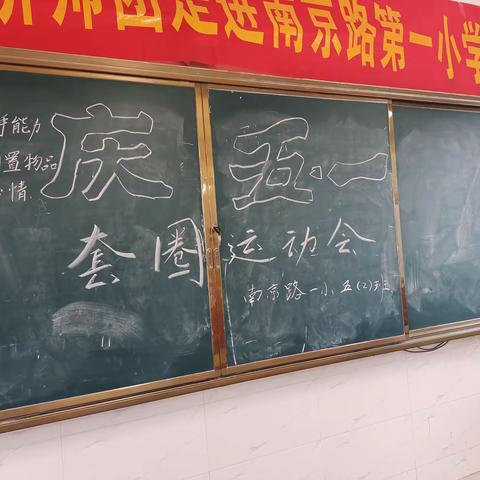 讲师团走进南京路第一小学
手能力
置物品
情
庆 五·一
套圈运动会
南京路一小五(2)班